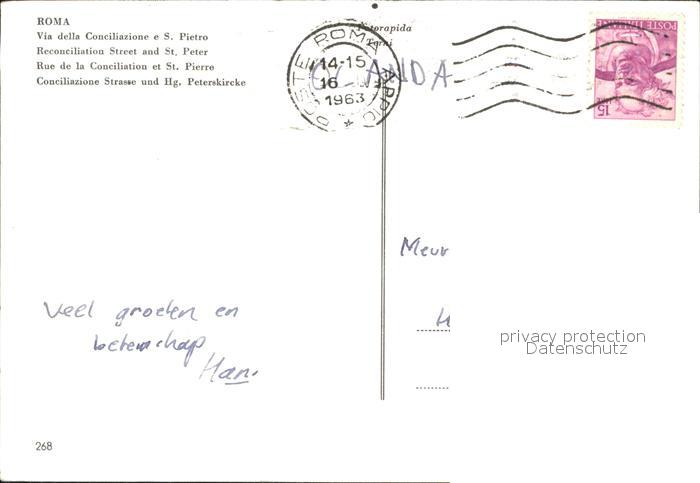 ROMA
Via della Conciliazione e S. Pietro
Reconciliation Street and St. Peter
Rue de la Conciliation et St. Pierre
Conciliazione Strasse und Hg. Peterskirche
Fotorapida
Terni
POSTE ROMA APPIO
14-15
16
1963
OLANDA
POSTE ITALIANE
15
Meur
H
privacy protection
Datenschutz
Veel groeten en
beterschap
Han.
268